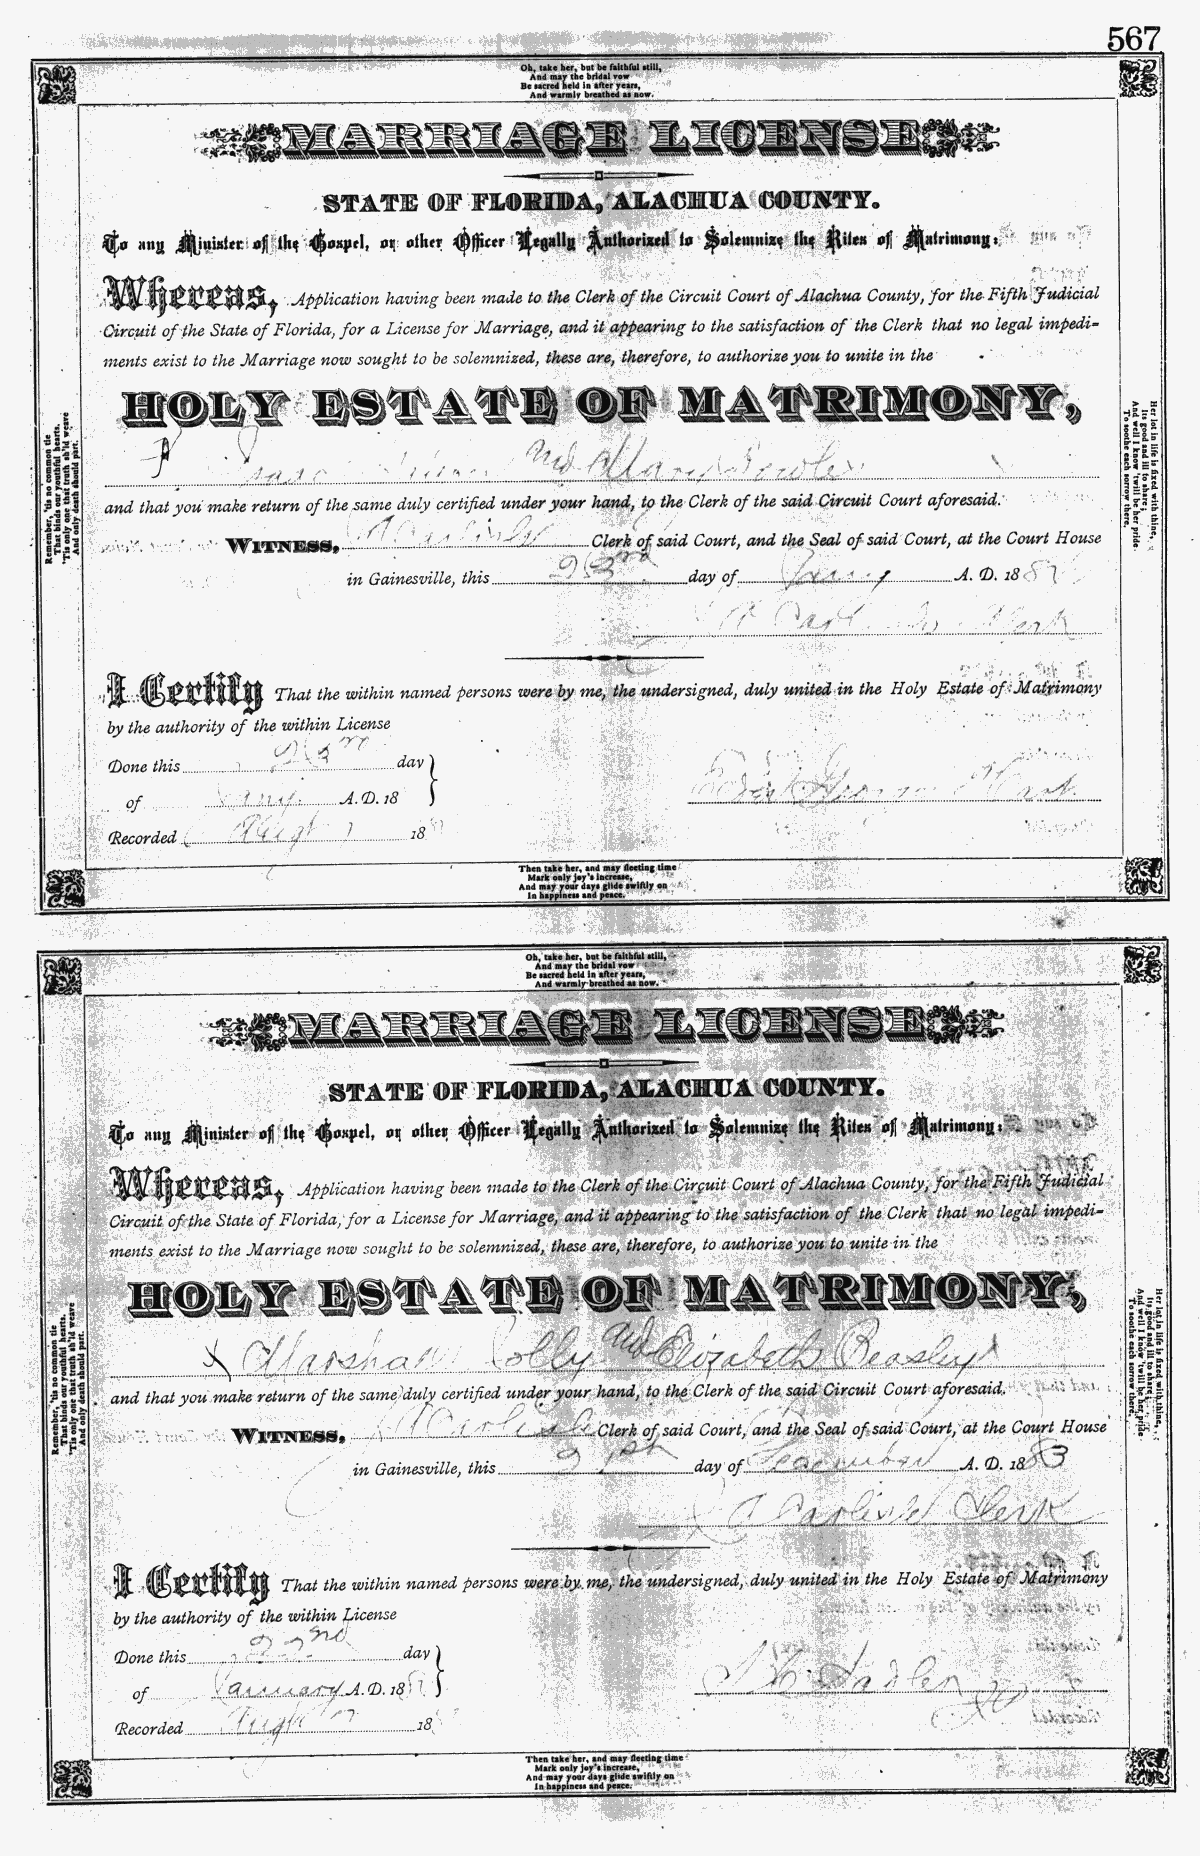 567
Oh, take her, but be faithful still,
And may the bridal vow
Be sacred held in after years,
And warmly breathed as now.
MARRIAGE LICENSE
STATE OF FLORIDA, ALACHUA COUNTY.
To any Minister of the Gospel, or other Officer Legally Authorized to Solemnize the Rites of Matrimony:
Whereas, Application having been made to the Clerk of the Circuit Court of Alachua County, for the Fifth Judicial
Circuit of the State of Florida, for a License for Marriage, and it appearing to the satisfaction of the Clerk that no legal impedi-
ments exist to the Marriage now sought to be solemnized, these are, therefore, to authorize you to unite in the
HOLY ESTATE OF MATRIMONY,
Isaac and Mary Fowler
and that you make return of the same duly certified under your hand, to the Clerk of the said Circuit Court aforesaid.
WITNESS, Carlisle Clerk of said Court, and the Seal of said Court, at the Court House
in Gainesville, this 23rd day of Jany A. D. 188
Carlisle Clerk
I Certify That the within named persons were by me, the undersigned, duly united in the Holy Estate of Matrimony
by the authority of the within License
Done this day
of Jany. A. D. 18
Recorded Aug 7 18
Remember, 'tis no common tie
That binds our youthful hearts.
'Tis only one that truth sh'ld weave
And only death should part.
Her lot in life is fixed with thine,
Its good and ill to share;
And well I know 'twill be her pride.
To soothe each sorrow there.
Then take her, and may fleeting time
Mark only joy's increase,
And may your days glide swiftly on
In happiness and peace.
Oh, take her, but be faithful still,
And may the bridal vow
Be sacred held in after years,
And warmly breathed as now.
MARRIAGE LICENSE
STATE OF FLORIDA, ALACHUA COUNTY.
To any Minister of the Gospel, or other Officer Legally Authorized to Solemnize the Rites of Matrimony:
Whereas, Application having been made to the Clerk of the Circuit Court of Alachua County, for the Fifth Judicial
Circuit of the State of Florida, for a License for Marriage, and it appearing to the satisfaction of the Clerk that no legal impedi-
ments exist to the Marriage now sought to be solemnized, these are, therefore, to authorize you to unite in the
HOLY ESTATE OF MATRIMONY,
Marshal Colly and Elizabeth Beasley
and that you make return of the same duly certified under your hand, to the Clerk of the said Circuit Court aforesaid.
WITNESS, J A Carlisle Clerk of said Court, and the Seal of said Court, at the Court House
in Gainesville, this 21st day of December A. D. 1883
J A Carlisle Clerk
I Certify That the within named persons were by me, the undersigned, duly united in the Holy Estate of Matrimony
by the authority of the within License
Done this 22nd day
of January A. D. 18
Recorded Aug 7 18
Remember, 'tis no common tie
That binds our youthful hearts.
'Tis only one that truth sh'ld weave
And only death should part.
Her lot in life is fixed with thine,
Its good and ill to share;
And well I know 'twill be her pride
To soothe each sorrow there.
Then take her, and may fleeting time
Mark only joy's increase,
And may your days glide swiftly on
In happiness and peace.